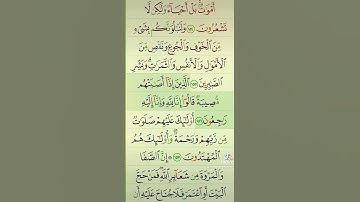 أَمْوَٰتٌۢ ۚ بَلْ أَحْيَآءٌ وَلَٰكِن لَّا
تَشْعُرُونَ ١٥٤ وَلَنَبْلُوَنَّكُم بِشَىْءٍ
مِّنَ ٱلْخَوْفِ وَٱلْجُوعِ وَنَقْصٍ مِّنَ
ٱلْأَمْوَٰلِ وَٱلْأَنفُسِ وَٱلثَّمَرَٰتِ ۗ وَبَشِّرِ
ٱلصَّٰبِرِينَ ١٥٥ ٱلَّذِينَ إِذَآ أَصَٰبَتْهُم
مُّصِيبَةٌ قَالُوٓا۟ إِنَّا لِلَّهِ وَإِنَّآ إِلَيْهِ
رَٰجِعُونَ ١٥٦ أُو۟لَٰٓئِكَ عَلَيْهِمْ صَلَوَٰتٌ
مِّن رَّبِّهِمْ وَرَحْمَةٌ ۖ وَأُو۟لَٰٓئِكَ هُمُ
ٱلْمُهْتَدُونَ ١٥٧ ۞ إِنَّ ٱلصَّفَا
وَٱلْمَرْوَةَ مِن شَعَآئِرِ ٱللَّهِ ۖ فَمَنْ حَجَّ
ٱلْبَيْتَ أَوِ ٱعْتَمَرَ فَلَا جُنَاحَ عَلَيْهِ أَن